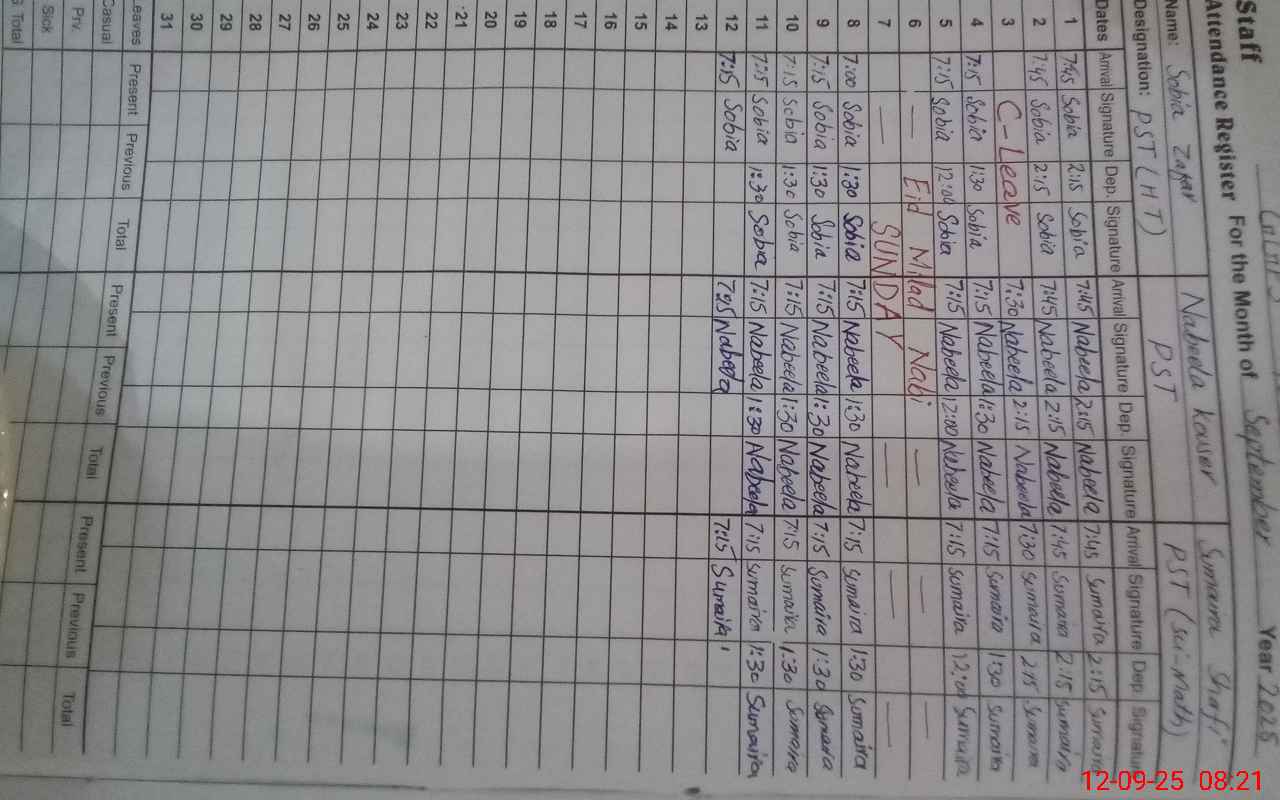 Staff
Attendance Register For the Month of September Year 2025
Name: Sobia Zafar Nabeela Kouser Sumaira Shafi
Designation: PST (HT) PST PST (sci-Math)
Dates Arrival Signature Dep. Signature Arrival Signature Dep. Signature Arrival Signature Dep Signature
1 7:45 Sobia 2:15 Sobia 7:45 Nabeela 2:15 Nabeela 7:45 Sumaira 2:15 Sumaira
2 7:45 Sobia 2:15 Sobia 7:45 Nabeela 2:15 Nabeela 7:45 Sumaira 2:15 Sumaira
3 C-Leave 7:30 Nabeela 2:15 Nabeela 7:30 Sumaira 2:15 Sumaira
4 7:15 Sobia 1:30 Sobia 7:15 Nabeela 1:30 Nabeela 7:15 Sumaira 1:30 Sumaira
5 7:15 Sobia 12:00 Sobia 7:15 Nabeela 12:00 Nabeela 7:15 Sumaira 12:00 Sumaira
6 — Eid Milad Nabi — — —
7 — SUNDAY — — —
8 7:00 Sobia 1:30 Sobia 7:15 Nabeela 1:30 Nabeela 7:15 Sumaira 1:30 Sumaira
9 7:15 Sobia 1:30 Sobia 7:15 Nabeela 1:30 Nabeela 7:15 Sumaira 1:30 Sumaira
10 7:15 Sobia 1:30 Sobia 7:15 Nabeela 1:30 Nabeela 7:15 Sumaira 1:30 Sumaira
11 7:15 Sobia 1:30 Sobia 7:15 Nabeela 1:30 Nabeela 7:15 Sumaira 1:30 Sumaira
12 7:15 Sobia Nabeela 7:15 Sumaira
13
14
15
16
17
18
19
20
21
22
23
24
25
26
27
28
29
30
31
Leaves Present Previous Total Present Previous Total Present Previous Total
Casual
Prv.
Sick
G Total
12-09-25 08:21